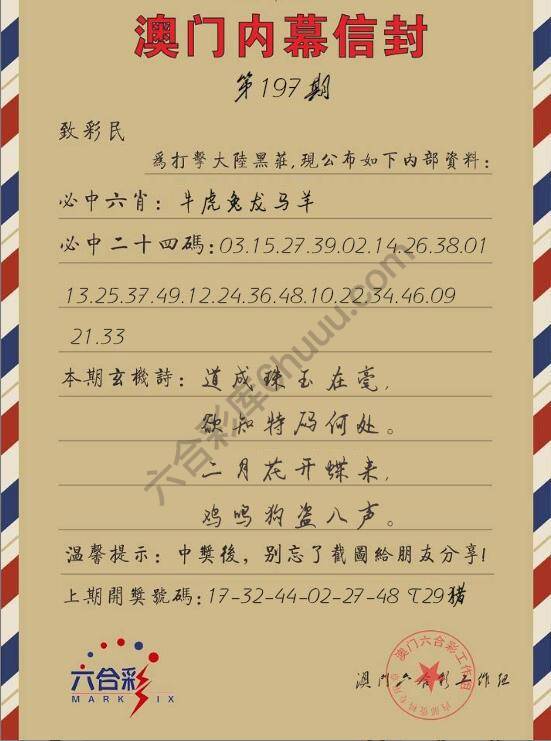 澳门内幕信封
第197期
致彩民
為打擊大陸黑莊,現公布如下内部資料:
必中六肖: 牛虎兔龙马羊
必中二十四碼:03.15.27.39.02.14.26.38.01
13.25.37.49.12.24.36.48.10.22.34.46.09
21.33
本期玄機詩: 道成珠玉在毫,
欲知特码何处。
二月花开蝶来,
鸡鸣狗盗八声。
温馨提示:中獎後,别忘了截圖給朋友分享!
上期開獎號碼:17-32-44-02-27-48 T29猪
六合彩
MARK SIX
澳门六合彩工作组
澳门六合彩工作组
六合彩库6huuu.com